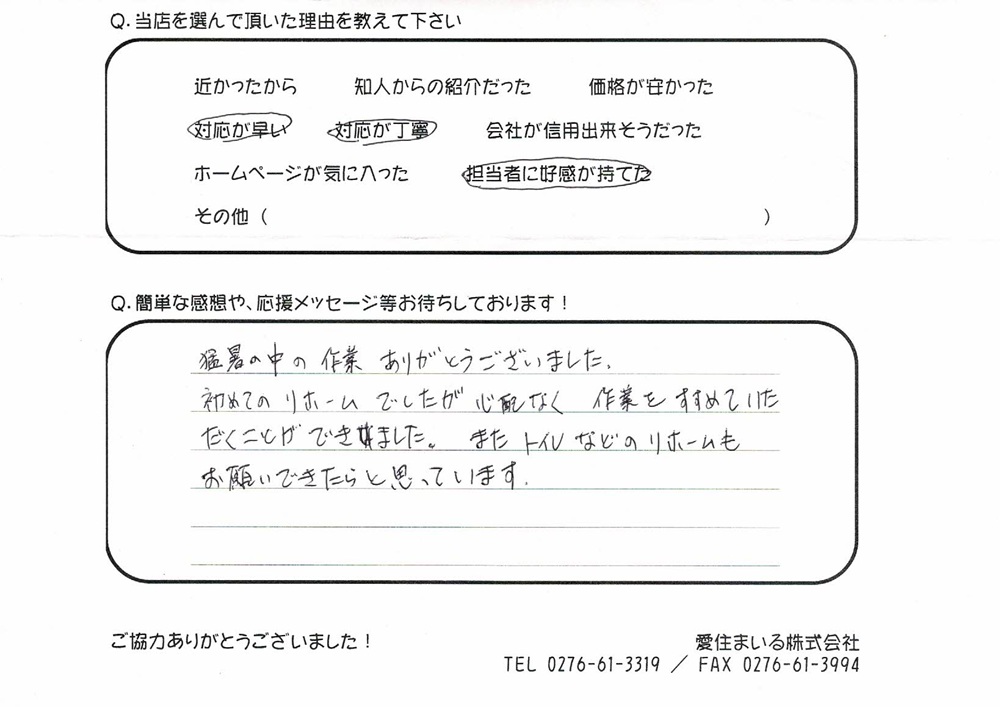 Q.当店を選んで頂いた理由を教えて下さい
近かったから 知人からの紹介だった 価格が安かった
対応が早い 対応が丁寧 会社が信用出来そうだった
ホームページが気に入った 担当者に好感が持てた
その他（ ）
Q.簡単な感想や、応援メッセージ等お待ちしております！
猛暑の中の作業 ありがとうございました。
初めてのリホームでしたが心配なく 作業をすすめていた
だくことができました。 またトイレなどのリホームも
お願いできたらと思っています。
ご協力ありがとうございました！
愛住まいる株式会社
TEL 0276-61-3319 ／ FAX 0276-61-3994